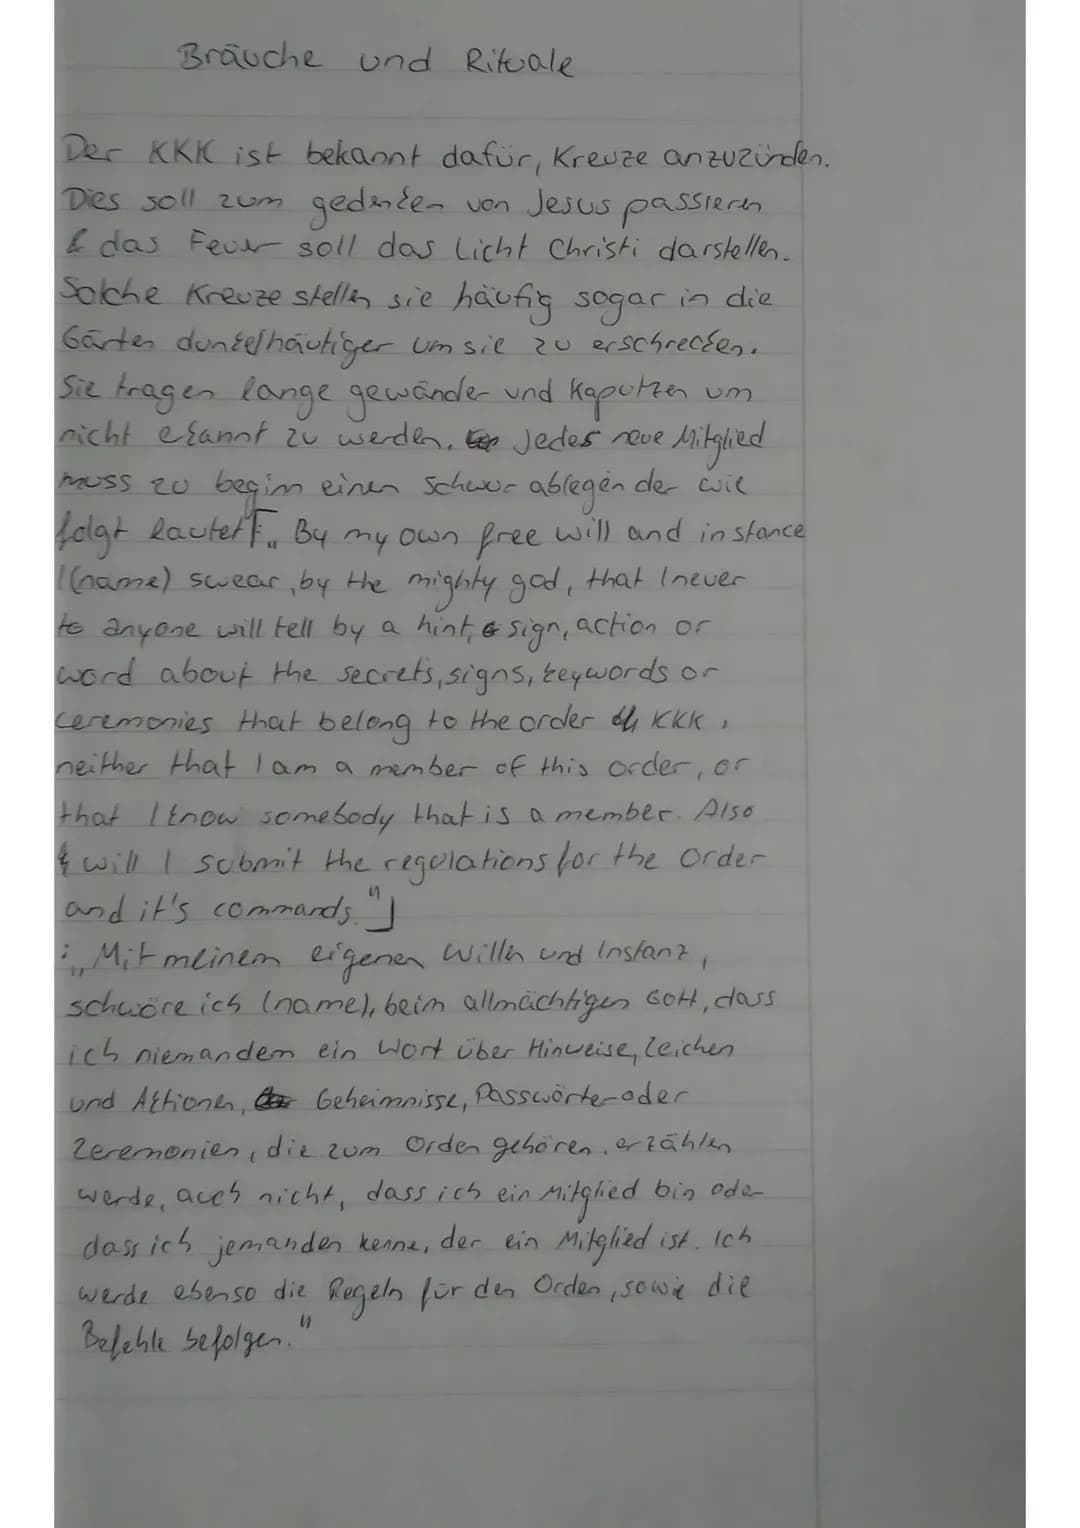 Bräuche und Rituale
Der KKK ist bekannt dafür, Kreuze anzuzünden.
Dies soll zum gedenken von Jesus passieren
& das Feuer soll das Licht Christi darstellen.
Solche Kreuze stellen sie häufig sogar in die
Gärten dunkelhäutiger um sie zu erschrecken.
Sie tragen lange gewänder und Kaputzen um
nicht erkannt zu werden. Jedes neue Mitglied
muss zu begin einen Schwur ablegen der wie
folgt lautet [„By my own free will and instance
I (name) swear, by the mighty god, that I never
to anyone will tell by a hint, sign, action or
word about the secrets, signs, keywords or
ceremonies that belong to the order KKK,
neither that I am a member of this order, or
that I know somebody that is a member. Also
will I submit the regulations for the order
and it's commands."]
: „Mit meinem eigenen Willen und Instanz,
schwöre ich (name), beim allmächtigen Gott, dass
ich niemandem ein Wort über Hinweise, Zeichen
und Aktionen, Geheimnisse, Passwörter oder
Zeremonien, die zum Orden gehören, erzählen
werde, auch nicht, dass ich ein Mitglied bin oder
dass ich jemanden kenne, der ein Mitglied ist. Ich
werde ebenso die Regeln für den Orden, sowie die
Befehle befolgen."